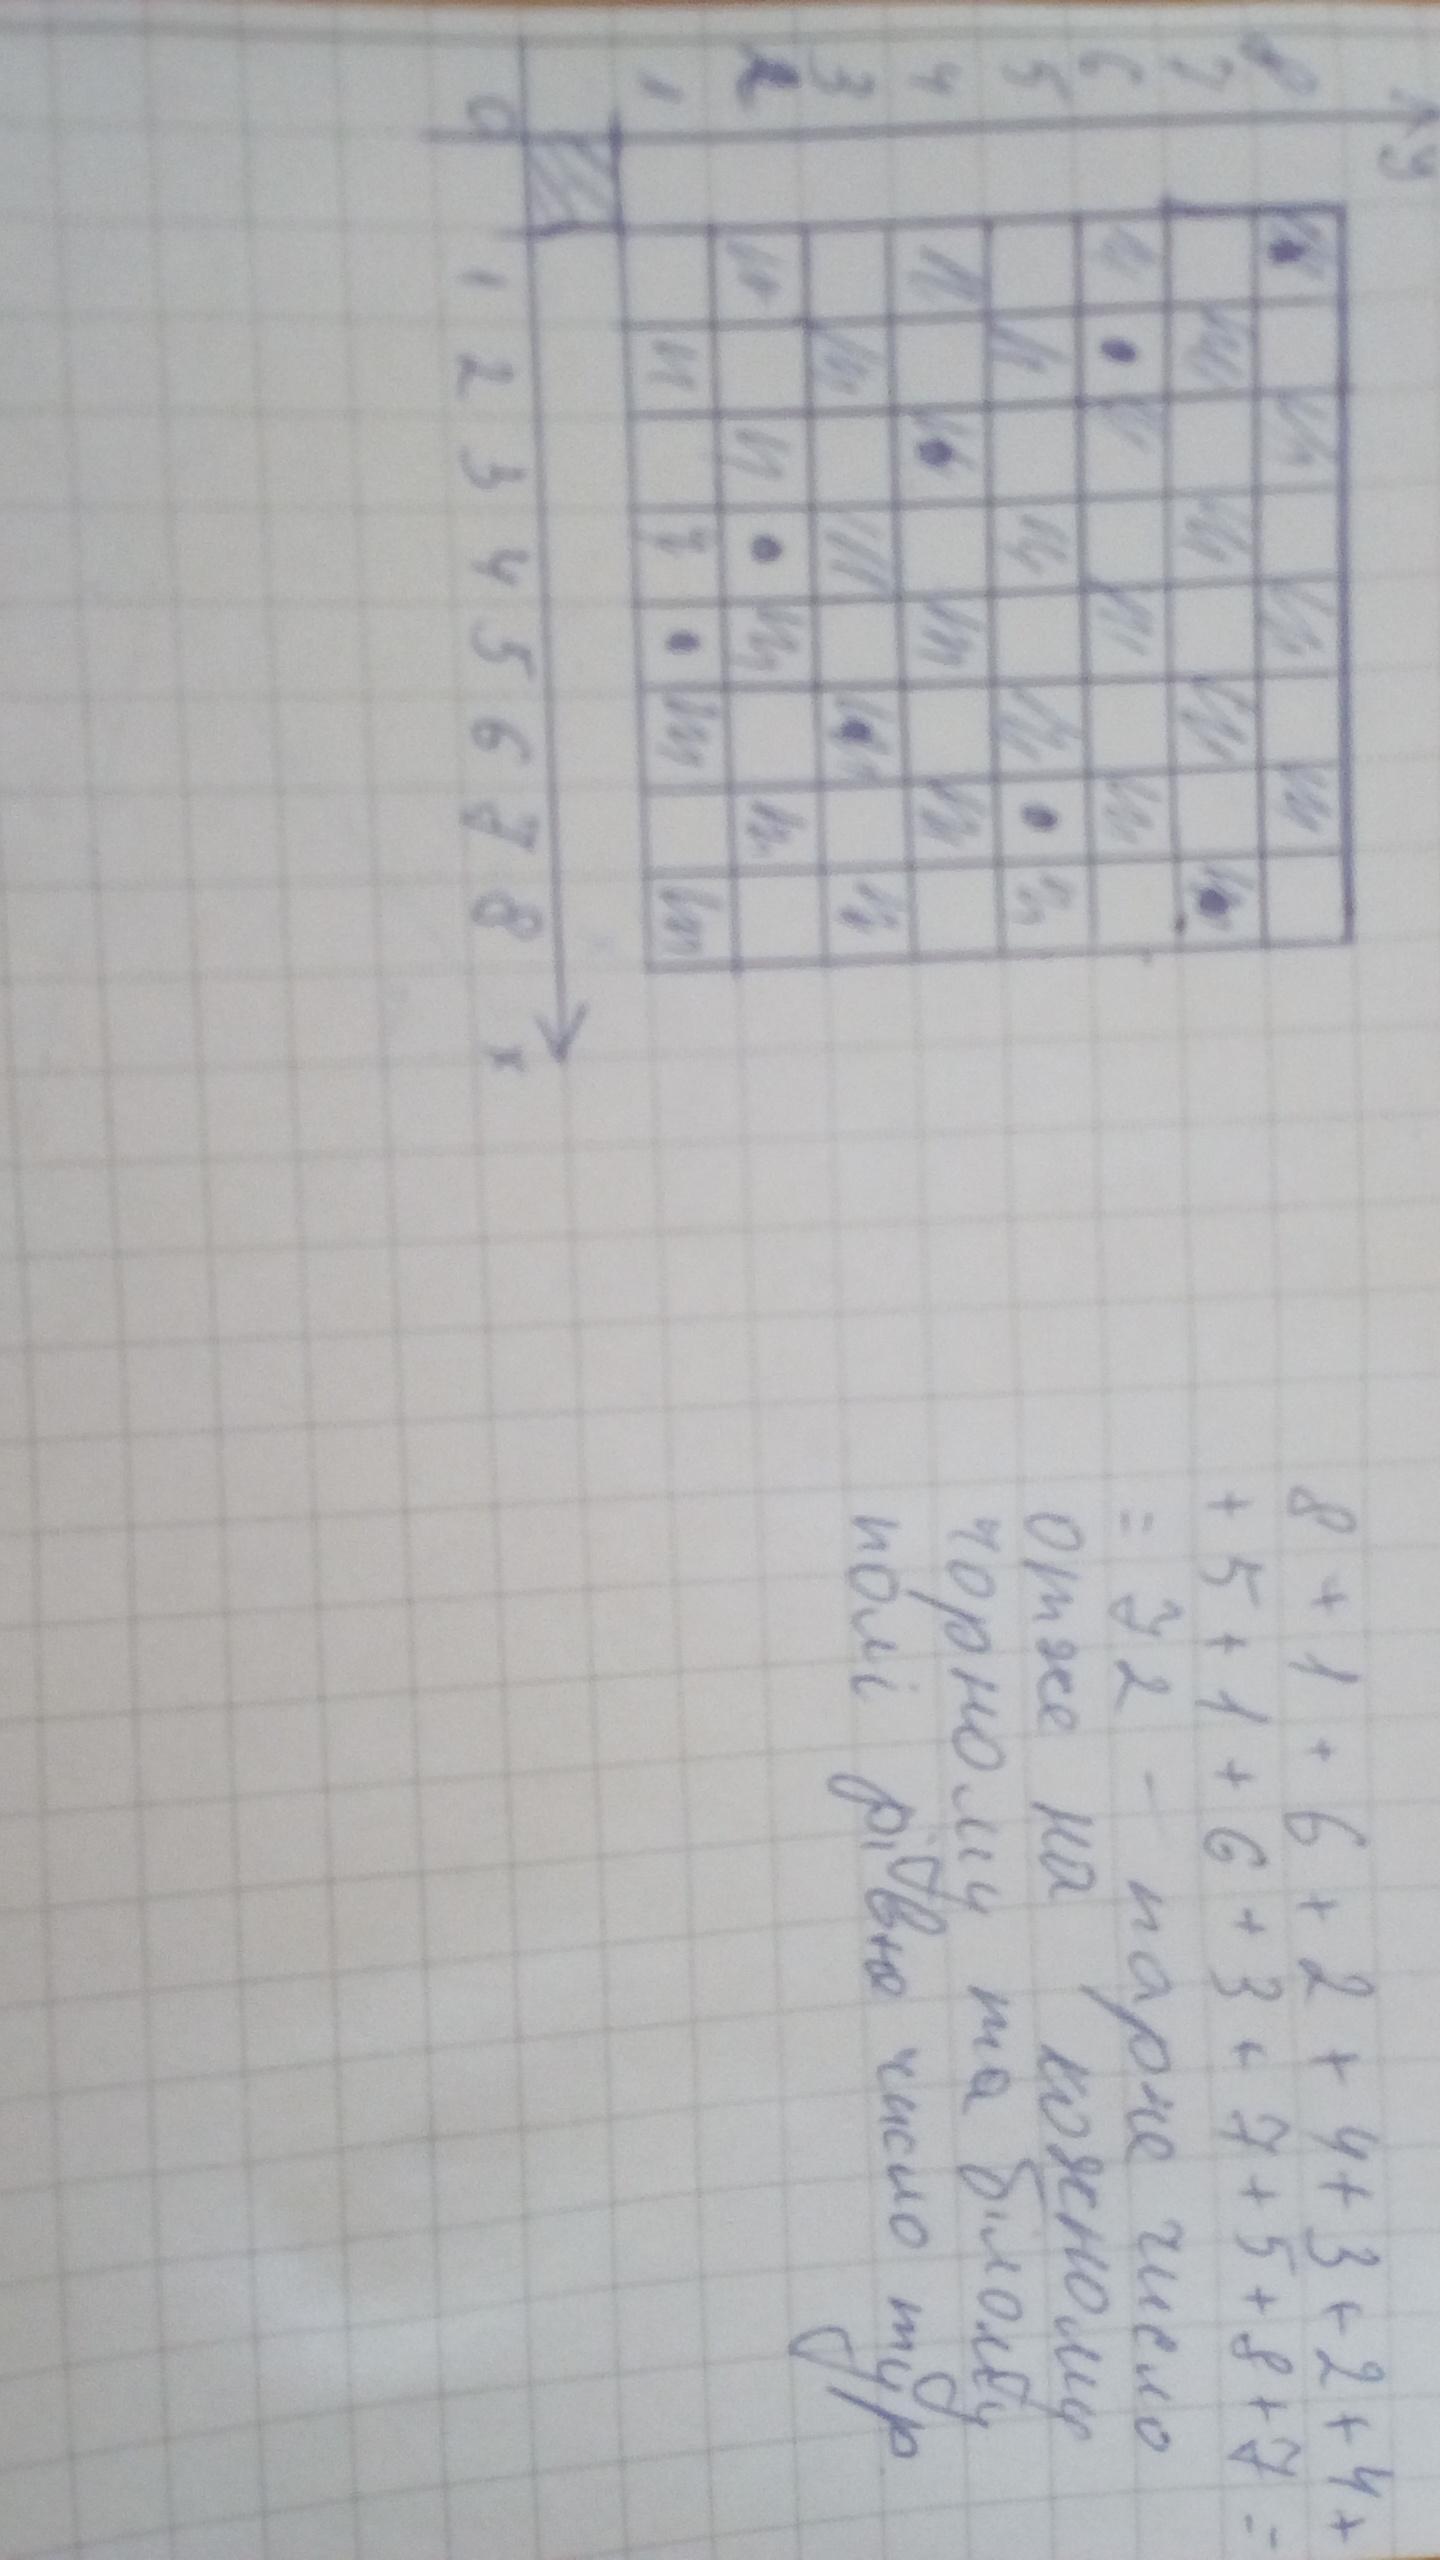 y
8
7
6
5
4
3
2
1
0
1 2 3 4 5 6 7 8 x
8 + 1 + 6 + 2 + 4 + 3 + 2 + 4 +
+ 5 + 1 + 6 + 3 + 7 + 5 + 8 + 7 =
= 72 - парне число
отже на кожному
чорному та білому
полі рівне число тур